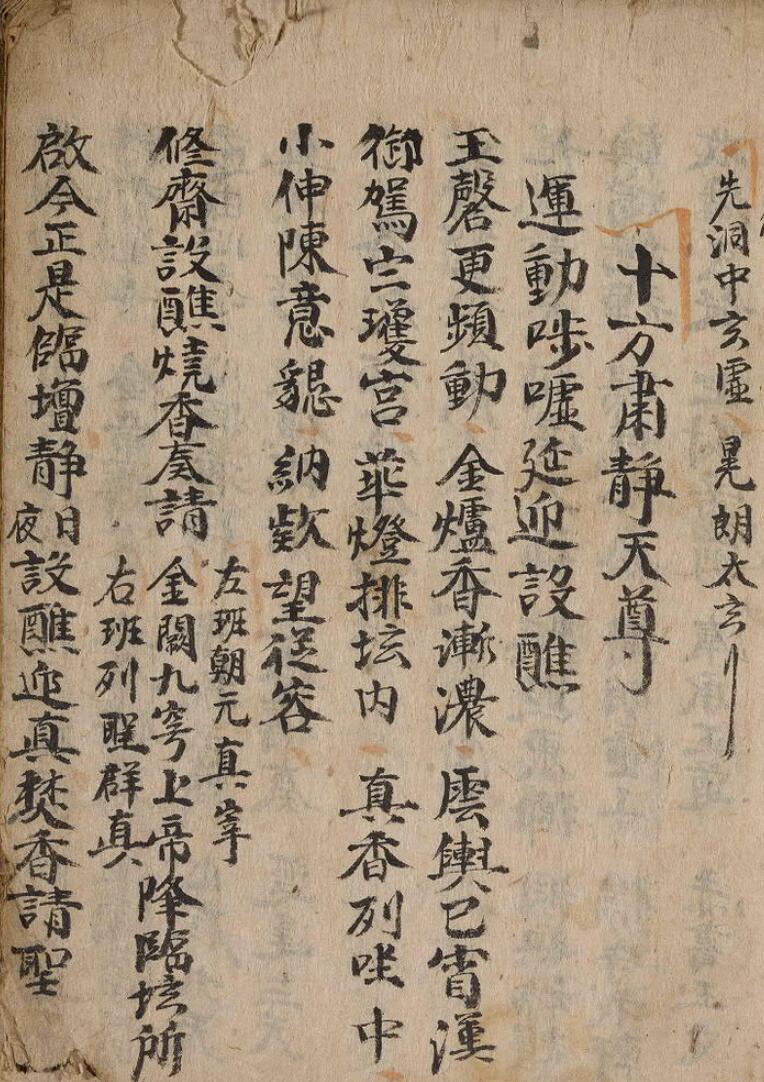 先洞中玄虛 晃朗太玄
十方肅静天尊
運動步噓延迎設醮
玉磬更頻動 金爐香漸濃 雲輿已霄漢
御駕亡瓊宮 華燈排坛内 真香列坐中
小伸陳意懇 納欵望從容
左班朝元真宰
修齋設醮燒香奏請 金闕九穹上帝降臨坛所
右班列聖群真
啟今正是臨壇静日夜設醮迎真焚香請聖